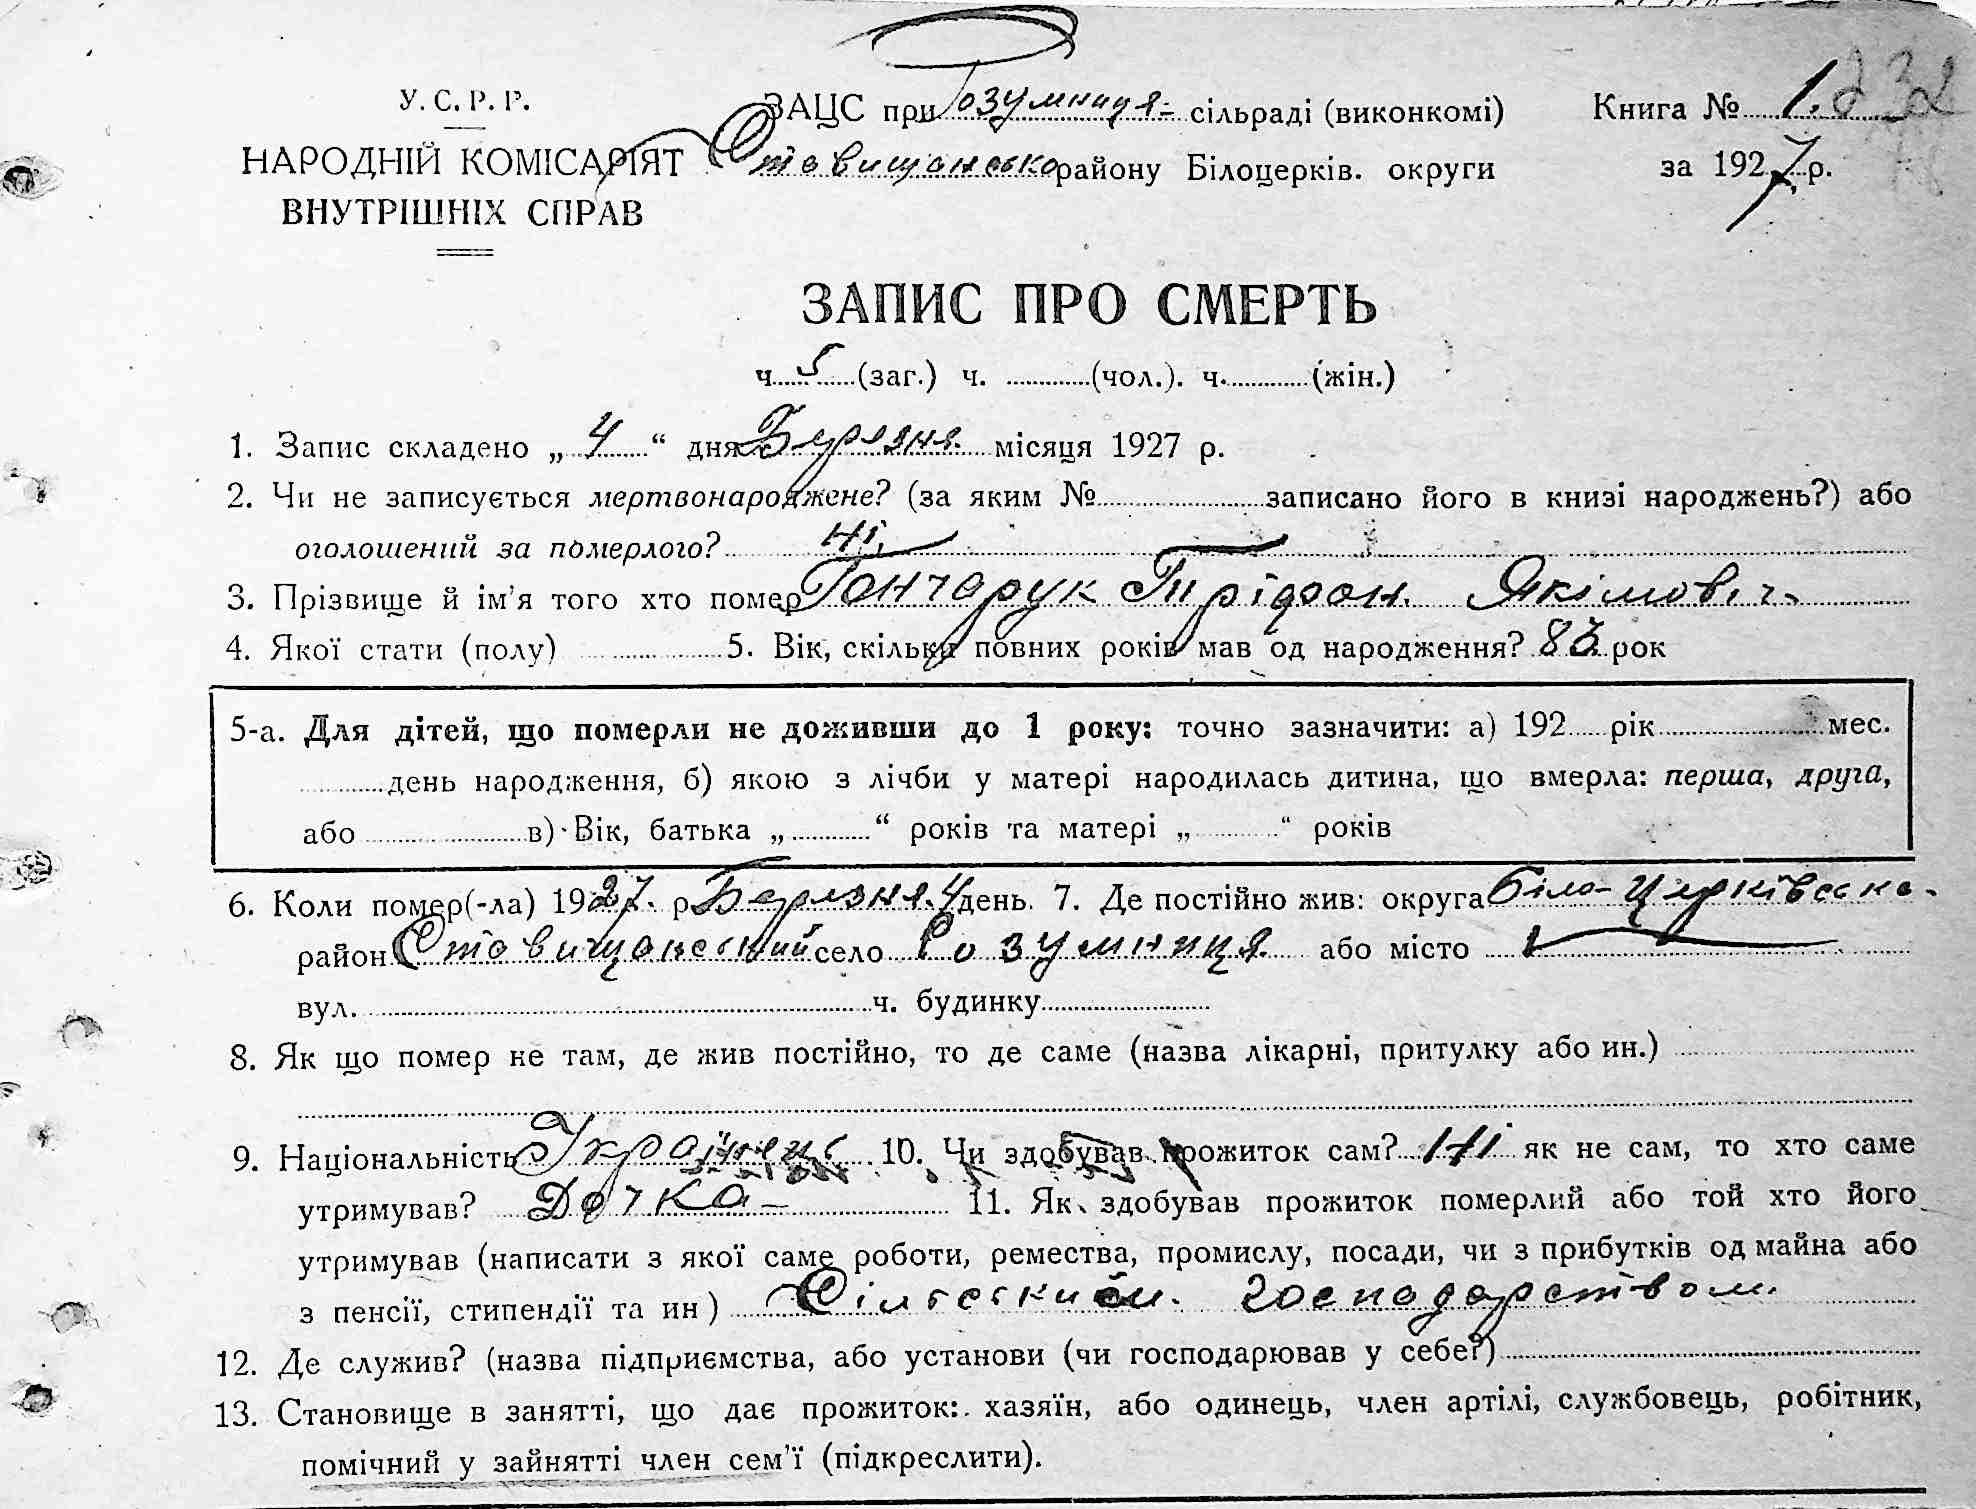 У. С. Р. Р.
НАРОДНІЙ КОМІСАРІЯТ
ВНУТРІШНІХ СПРАВ
ЗАЦС при Розумниця- сільраді (виконкомі)
Ставищансько району Білоцерків. округи
Книга № 1. 232
за 1927 р.
ЗАПИС ПРО СМЕРТЬ
ч. 5 (заг.) ч. (чол.). ч. (жін.)
1. Запис складено „ 4 “ дня Березня місяця 1927 р.
2. Чи не записується мертвонароджене? (за яким № записано його в книзі народжень?) або
оголошений за померлого? Ні,
3. Прізвище й ім'я того хто помер Гончарук Трідфон. Якімовіч.
4. Якої стати (полу) 5. Вік, скільки повних років мав од народження? 83 рок
5-а. Для дітей, що померли не доживши до 1 року: точно зазначити: а) 192 рік мес.
день народження, б) якою з лічби у матері народилась дитина, що вмерла: перша, друга,
або в) Вік, батька „ “ років та матері „ “ років
6. Коли помер(-ла) 1927. р. Березня. 4 день. 7. Де постійно жив: округа Біло-Церківська.
район Ставищанський село Розумниця. або місто
вул. ч. будинку
8. Як що помер не там, де жив постійно, то де саме (назва лікарні, притулку або ин.)
9. Національність Українець 10. Чи здобував прожиток сам? Ні як не сам, то хто саме
утримував? Дочка- 11. Як здобував прожиток померлий або той хто його
утримував (написати з якої саме роботи, ремества, промислу, посади, чи з прибутків од майна або
з пенсії, стипендії та ин) Сільським. господарством.
12. Де служив? (назва підприємства, або установи (чи господарював у себе?)
13. Становище в занятті, що дає прожиток: хазяїн, або одинець, член артілі, службовець, робітник,
помічний у зайнятті член сем'ї (підкреслити).